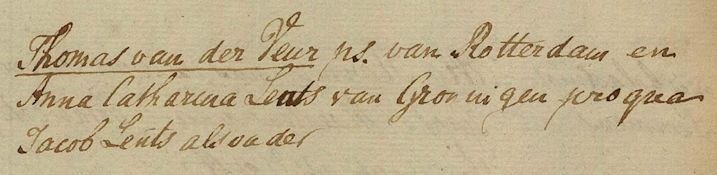 Thomas van der Veur ps. van Rotterdam en
Anna Catharina Lents van Groningen pro qua
Jacob Lents als vader